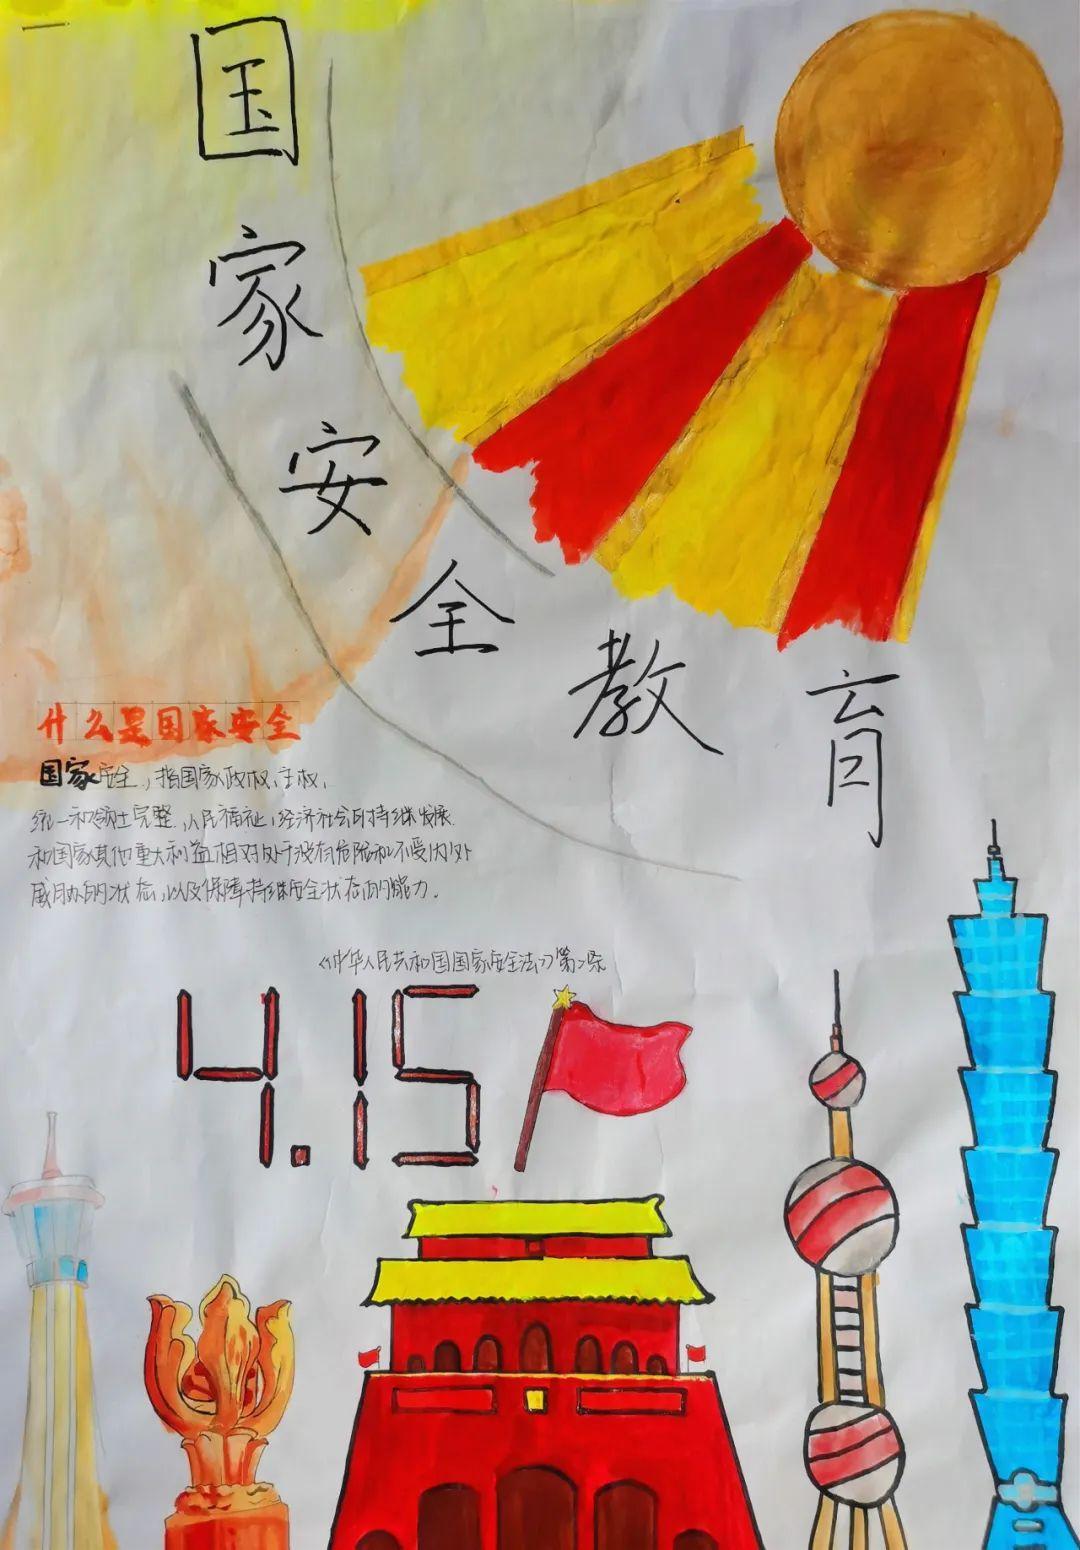 国家安全教育
什么是国家安全
国家安全,指国家政权、主权、
统一和领土完整、人民福祉、经济社会可持续发展
和国家其他重大利益相对处于没有危险和不受内外
威胁的状态,以及保障持续安全状态的能力。
《中华人民共和国国家安全法》第二条
4.15